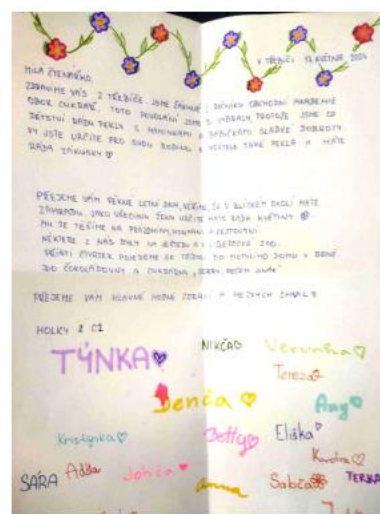 V TŘEBÍČI 17. KVĚTNA 2024
MILÁ ČTENÁŘKO,
ZDRAVÍME VÁS Z TŘEBÍČE. JSME ŽÁKYNĚ Z OBCHODNÍ AKADEMIE
OBOR CUKRÁŘ. TOTO POVOLÁNÍ JSME SI VYBRALY PROTOŽE JSME OD
DĚTSTVÍ RÁDY PEKLY S MAMINKAMI A BABIČKAMI SLADKÉ DOBROTY.
VY JSTE URČITĚ PRO SVOU RODINU A PŘÁTELE TAKÉ PEKLA A MÁTE
RÁDA ZÁKUSKY
PŘEJEME VÁM PĚKNÉ LETNÍ DNY, VĚŘÍME, ŽE V BLÍZKÉM OKOLÍ MÁTE
ZAHRADU, JAKO VĚTŠINA ŽEN URČITĚ MÁTE RÁDA KVĚTINY
MY SE TĚŠÍME NA PRÁZDNINY, KOUPÁNÍ A CESTOVÁNÍ
NĚKTERÉ Z NÁS BYLY NA VÝLETĚ V ZOO.
PŘÍŠTÍ ČTVRTEK POJEDEME DO V BRNĚ
DO ČOKOLÁDOVNY A CUKRÁRNA
PŘEJEME VÁM HLAVNĚ HODNĚ ZDRAVÍ A HEZKÝCH CHVIL
HOLKY Z C1
TÝNKA
NIKČA
Verunka
Tereza
Denča
Any
Kristýnka
Betty
Eliška
Karolína
SÁRA
Adéla
Johča
Anna
Sabča
TERKA